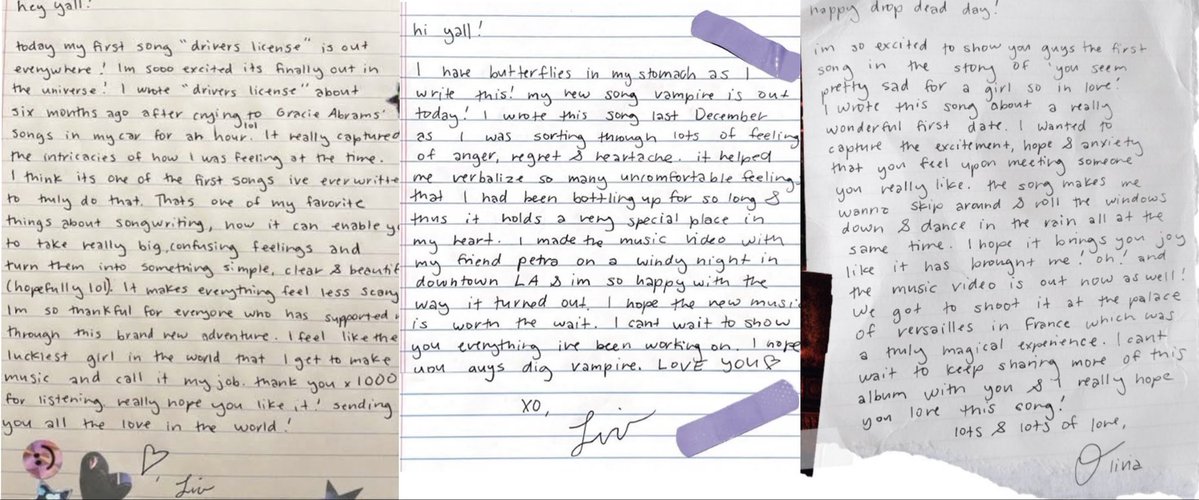 hey yall!
today my first song "drivers license" is out
everywhere! Im sooo excited its finally out in
the universe! I wrote "drivers license" about
six months ago after crying to Gracie Abrams'
songs in my car for an hour. lol It really captured
the intricacies of how I was feeling at the time.
I think its one of the first songs ive ever writte
to truly do that. Thats one of my favorite
things about songwriting, how it can enable y
to take really big, confusing feelings and
turn them into something simple, clear & beautif
(hopefully lol). It makes everything feel less scary
Im so thankful for everyone who has supported
through this brand new adventure. I feel like the
luckiest girl in the world that I get to make
music and call it my job. thank you x 1000
for listening. really hope you like it! sending
you all the love in the world!
Liv
hi yall!
I have butterflies in my stomach as I
write this! my new song vampire is out
today! I wrote this song last December
as I was sorting through lots of feeling
of anger, regret & heartache. it helped
me verbalize so many uncomfortable feeling
that I had been bottling up for so long &
thus it holds a very special place in
my heart. I made the music video with
my friend petra on a windy night in
downtown LA & im so happy with the
way it turned out. I hope the new music
is worth the wait. I cant wait to show
you everything ive been working on. I hope
you guys dig vampire. LOVE YOU
XO,
Liv
happy drop dead day!
im so excited to show you guys the first
song in the story of 'you seem
pretty sad for a girl so in love!
I wrote this song about a really
wonderful first date. I wanted to
capture the excitement, hope & anxiety
that you feel upon meeting someone
you really like. the song makes me
wanna skip around & roll the windows
down & dance in the rain all at the
same time. I hope it brings you joy
like it has brought me! oh! and
the music video is out now as well!
We got to shoot it at the palace
of versailles in France which was
a truly magical experience. I cant
wait to keep sharing more of this
album with you & I really hope
you love this song!
lots & lots of love,
Olivia